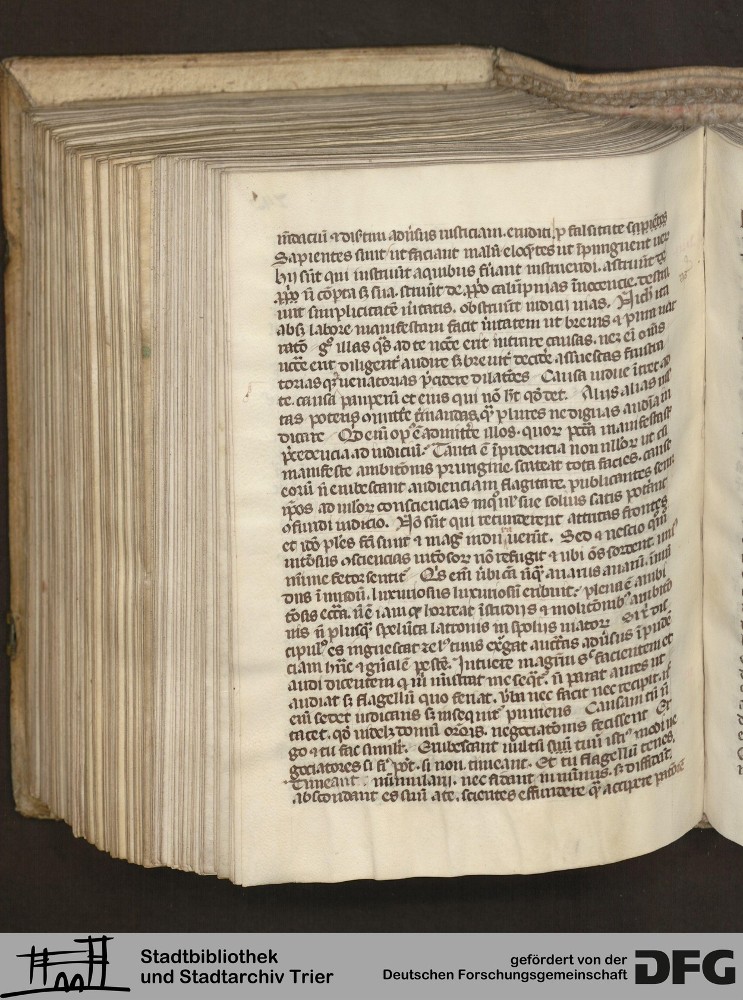 m̄daciū ⁊ diserti adūsus iusticiam. eruditi ꝓ falsitate sapiētes
Sapientes sunt ut faciant malū eloq̄tes ut īpungnent ver
hij sūt qui instruūt a quibus fu̾ant instruendi. astruūt de
ꝓpo n̄ cōp̄ta s; sua. struūt de ꝓpo calūpnias īnocencie. destru
unt simplicitatē ūitatis. obstruūt iudicii uias. Nich̄ ita
absq; labore manifestam facit ūitatem ut breuis ⁊ pura nar
ratō g° illas q̄s ad te nēce erit intrare causas. neꝫ eī om̄s
nēce erit diligent̄ audire s; breuit̾ decid̾e assuescas frustra
torias q; uenatorias p̄cidere dilatōes Causa uidue ītret ad
te. causa paupe᷑ū et eius qui nō ħt q̇ det. Aliis alias mul
tas poteris 9mitt̄e t̄minandas. q̄ plures ne dignas audiā iu
dicare Qd em̄ op᷒ ē admitt̄e illos. quoꝝ pctā manifesta st̄
p̄cedencia ad iudiciū? Tanta ē īpudencia non nlloꝝ ut cū
manifeste ambitōnis prurigine scateat tota facies. cause
eorū n̄ erubescant audienciam flagitare. publicantes seme
ip̄os ad mltoꝝ consciencias īn q' uł sue solius satis potuīt
9fundi iudicio. Nō sūt qui retunderent attritas frontes
et iō ples fc̄i sunt ⁊ mag̾ monuuerūt. Sed ⁊ nescio q̄m
uitosus 9sciencias uitōsoꝝ nō refugit ⁊ ubi oēs sordent uni᷒
minime fetor sentit᷑ Q's em̄ ūbi gr̄a ūq; auarus auarū. inmū
dus īmūdū. luxuriosus luxuriosū erubuit? plena ē ambi
tōsis ecc̄a. n̄ ē iam q' horreat ī studijs ⁊ molitōnib᷒ ambitō
nis n̄ plusq; spelūca latronis in spolijs uiatoꝝ Si x̄ dis
cipul᷒ es ingnescat zel᷒ tuus ex̾gat auct̄tas adūsus īpude
ciam hn̄c ⁊ gn̄alē pestē. Intuere magr̄m s͛ facientem et
audi dicentem q' m̄ m̄istrat me seq̄t. n̄ parat aures ut
audiat s; flagellū quo feriat. ūba nec facit nec recipit. n̄
em̄ sedet iudicans s; inseq't᷑ puniens Causam tn̄ n̄
tacet. qd̄ uidelꝫ domū orōis. negociatōnis fecissent Et
g° ⁊ tu fac similit̾. Erubescant uultū tuū isti᷒modi ne
gociatores si fi᾽ pōt. si non timeant. Et tu flagellū tenes.
Timeant nūmulani. nec fidant in nūmis. s; diffidāt.
abscondant es suū a te. scientes effundere q̄ accipere patōrē
Stadtbibliothek
und Stadtarchiv Trier
gefördert von der
Deutschen Forschungsgemeinschaft
DFG